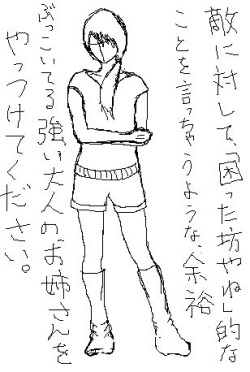 敵に対して、「困った坊やね」的な
ことを言っちゃうような、余裕
ぶっこいてる強い大人のお姉さんを
やっつけてください。